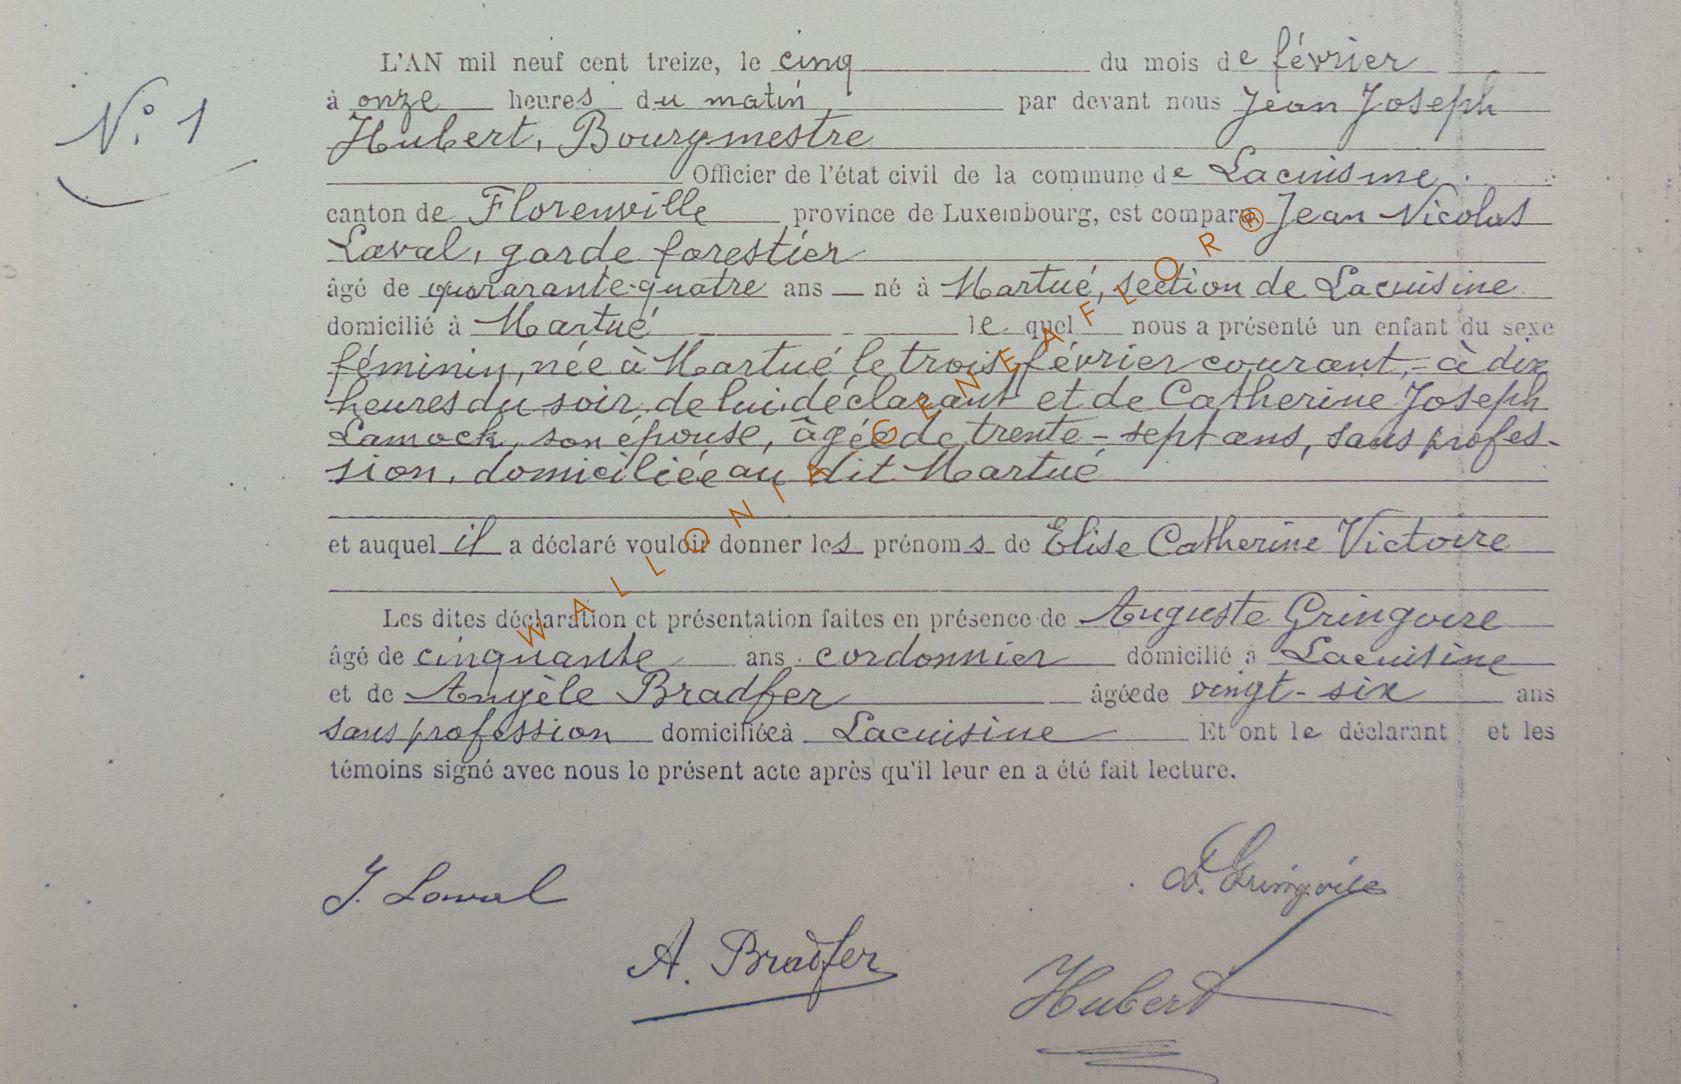 L'AN mil neuf cent treize, le cinq du mois de février
N° 1
à onze heures du matin, par devant nous Jean Joseph
Hubert, Bourgmestre
Officier de l'état civil de la commune de Lacuisine
canton de Florenville province de Luxembourg, est comparu Jean Nicolas
Laval, garde forestier
âgé de quararante-quatre ans né à Martué, section de Lacuisine
domicilié à Martué le quel nous a présenté un enfant du sexe
féminin, née à Martué le trois février courant, à dix
heures du soir, de lui déclarant et de Catherine Joseph
Lamock, son épouse, âgée de trente-sept ans, sans profes-
sion, domiciliée au dit Martué
et auquel il a déclaré vouloir donner les prénoms de Elise Catherine Victoire
Les dites déclaration et présentation faites en présence de Auguste Gringoire
âgé de cinquante ans cordonnier domicilié à Lacuisine
et de Angèle Bradfer âgée de vingt-six ans
sans profession domiciliée à Lacuisine Et ont le déclarant et les
témoins signé avec nous le présent acte après qu'il leur en a été fait lecture.
J. Laval
Gringoire
A. Bradfer
Hubert
WALLONIA GENEAFLOR®